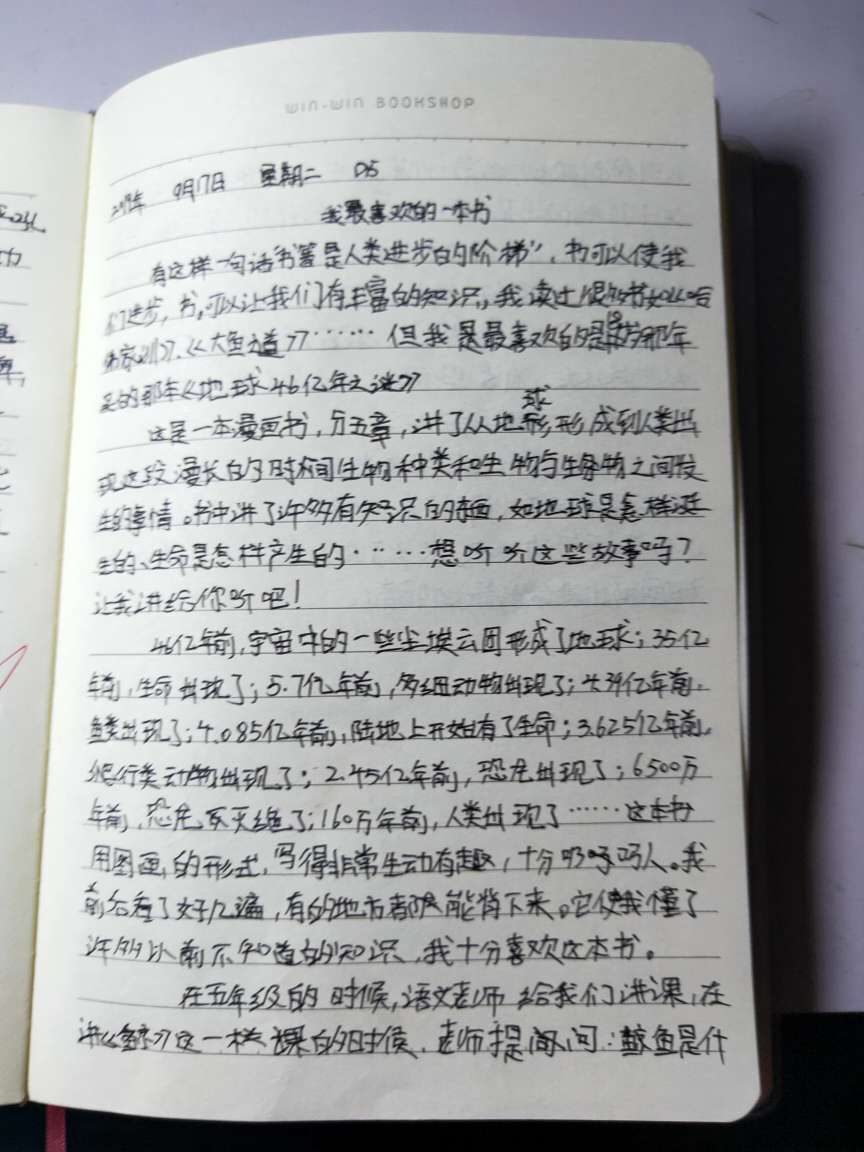 WIN-WIN BOOKSHOP
2019年 9月17日 星期二 D5
我最喜欢的一本书
有这样一句话"书籍是人类进步的阶梯"，书可以使我
们进步，书，可以让我们有丰富的知识，我读过很多书如《哈
》、《大鱼之道》…… 但我是最喜欢的是那年
买的那本《地球46亿年之谜》
这是一本漫画书，分五章，讲了从地球形成到人类出
现这段漫长的时间生物种类和生物与生物之间发
生的事情。书中讲了许多有知识的东西，如地球是怎样诞
生的、生命是怎样产生的……想听听这些故事吗？
让我讲给你听吧！
46亿年前，宇宙中的一些尘埃云团形成了地球；35亿
年前，生命出现了；5.7亿年前，多细动物出现了；4.39亿年前，
鱼类出现了；4.085亿年前，陆地上开始有了生命；3.625亿年前，
爬行类动物出现了；2.45亿年前，恐龙出现了；6500万
年前，恐龙灭绝了；160万年前，人类出现了……这本书
用图画的形式，写得非常生动有趣，十分吸引人。我
前后看了好几遍，有的地方都能背下来。它使我懂了
许多以前不知道的知识，我十分喜欢这本书。
在五年级的时候，语文老师给我们讲课，在
讲《鲸》这一课的时候，老师提问：鲸鱼是什